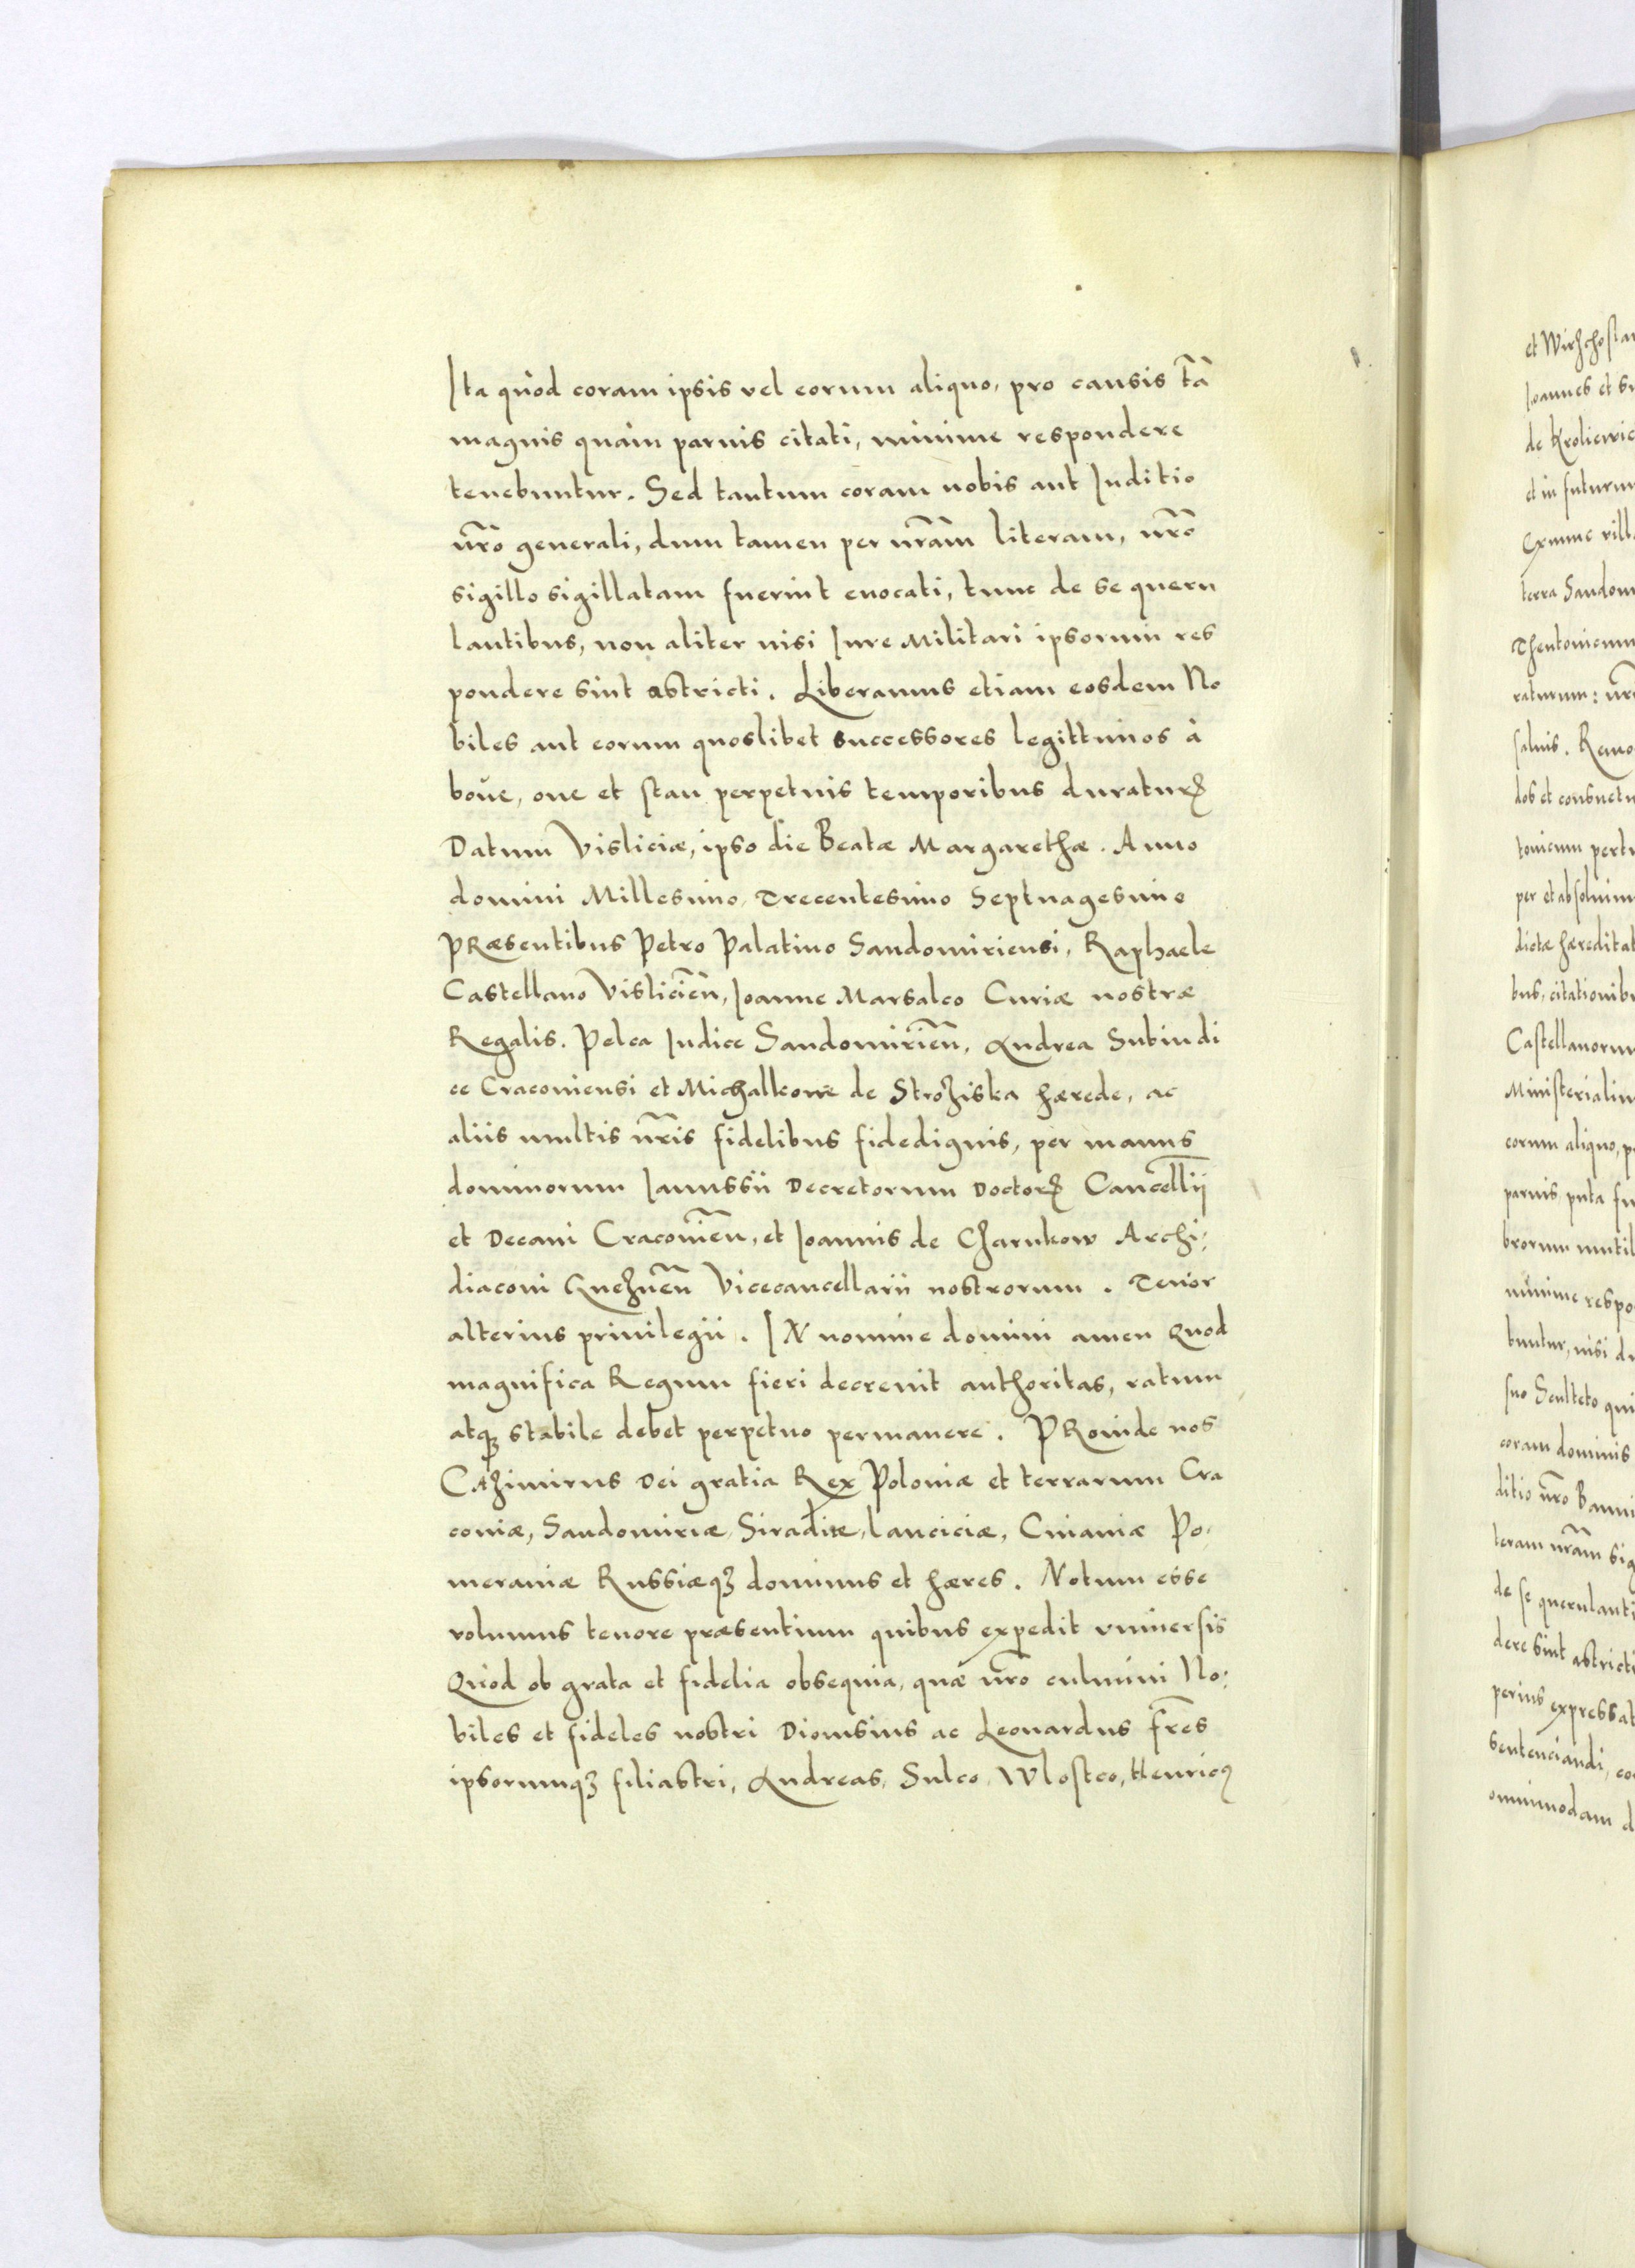 Ita quòd coram ipsis vel eorum aliquo, pro causis tā
magnis quàm paruis citati, minime respondere
tenebuntur. Sed tantum coram nobis aut Iuditio
nr̃o generali, dum tamen per nr̃am literam, nr̃o
sigillo sigillatam fuerint euocati, tunc de se queru
lantibus, non aliter nisi Iure Militari ipsorum res
pondere sint astricti. Liberamus etiam eosdem No
biles aut eorum quoslibet successores legittimos à
boue, oue et stan perpetuis temporibus duraturꝝ
Datum Visliciæ, ipso die Beatæ Margarethæ. Anno
domini Millesimo, Trecentesimo Septuagesimo
PRæsentibus Petro Palatino Sandomiriensi, Raphaele
Castellano Visliciēn, Ioanne Marsalco Curiæ nostræ
Regalis. Pelca Iudice Sandomiriēn, Andrea Subiudi
ce Cracouiensi et Michallcone de Stroziska hærede, ac
aliis multis nr̃is fidelibus fidedignis, per manus
dominorum Ianussii Decretorum Doctorꝝ Cancellīj
et Decani Cracouiēn, et Ioannis de Charnkow Archi:
diaconi Gneznēn Vicecancellarii nostrorum. Tenor
alterius priuilegii. IN nomine domini amen Quod
magnifica Regum fieri decreuit authoritas, ratum
atqꝫ stabile debet perpetuo permanere. PRoinde nos
CAzimirus Dei gratia Rex Poloniæ et terrarum Cra
couiæ, Sandomiriæ, Siradiæ, Lanciciæ, Cuiauiæ Po,
meraniæ Russiæqꝫ dominus et hæres. Notum esse
volumus tenore præsentium quibus expedit vniuersis
Quòd ob grata et fidelia obsequia, quæ nr̃o culmini No:
biles et fideles nostri Dionisius ac Leonardus fr̃es
ipsorumqꝫ filiastri, Andreas, Sulco, Wlostco, Henricꝰ
et Wirzchosla
Ioannes et
de Kroliewic
et in futurum
Exnunc vill
terra Sandom
Theutonicum
raturum: nr̃
saluis. Remo
dos et consuetu
tonicum pertu
per et absoluim
dictæ hæreditat
bus, citationibu
Castellanorum
Ministerialiu
eorum aliquo, p
paruis, puta fu
brorum mutil
minime respo
buntur, nisi du
suo Sculteto qui
coram dominis
ditio nr̃o Banni
teram nr̃am sig
de se querulanti
dere sint astricti
perius expressat
sentenciandi, co
omnimodam d